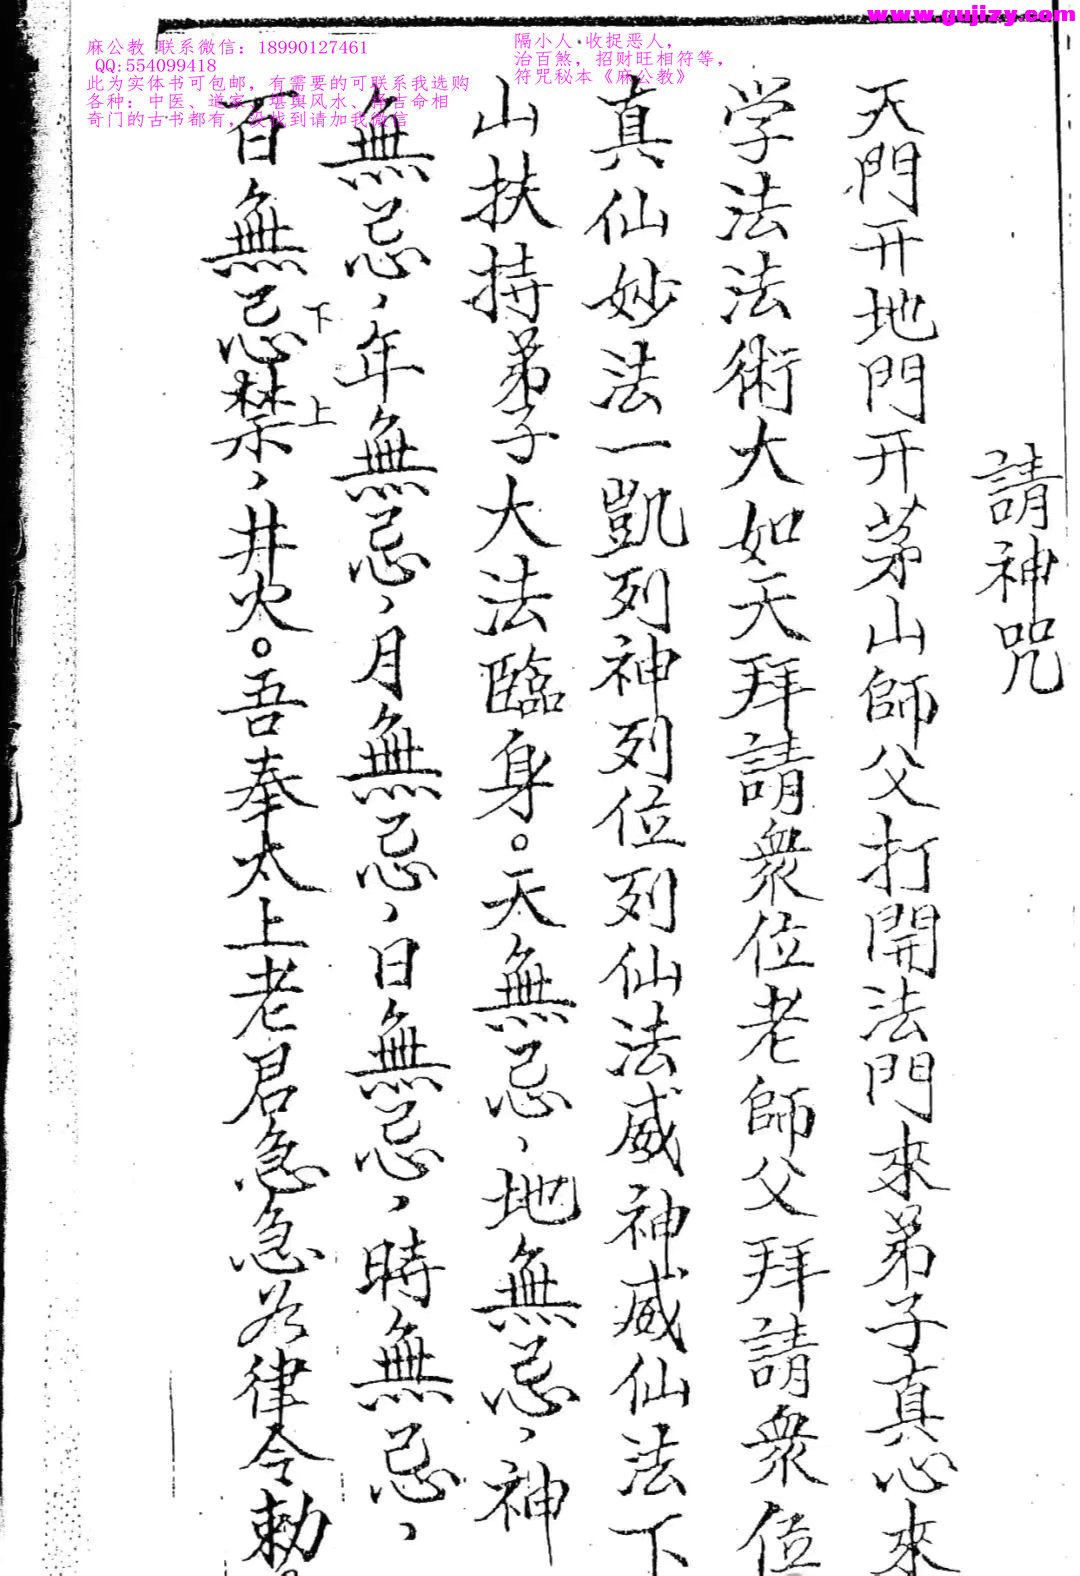 www.gujizy.com
麻公教 联系微信：18990127461
QQ:554099418
此为实体书可包邮，有需要的可联系我选购
各种：中医、道家、堪舆风水、择吉命相
奇门的古书都有，没找到请加我微信
隔小人 收捉恶人，
治百煞，招财旺相符等，
符咒秘本《麻公教》
請神咒
天門开地門开茅山師父打開法門來弟子真心來
学法法術大如天拜請衆位老師父拜請衆位
真仙妙法一凱列神列位列仙法威神威仙法下
山扶持弟子大法臨身。天無忌、地無忌、神
無忌、年無忌、月無忌、日無忌、時無忌、
百無忌禁、井火。吾奉太上老君急急如律令勅。
下
上